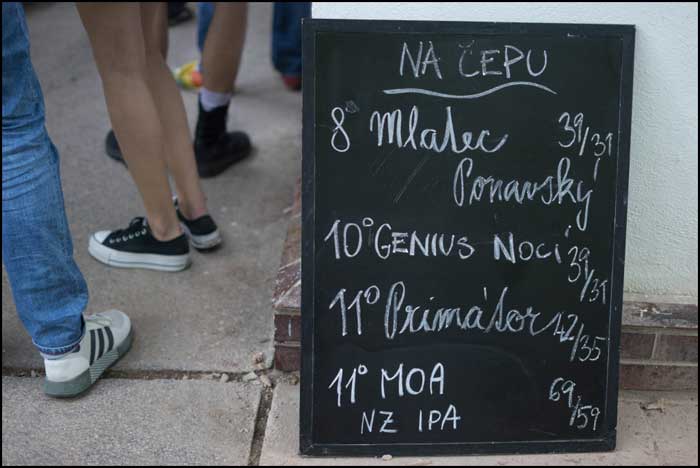 NA ČEPU
8° Mlatec 39/31
Ponavský
10° GENIUS NOCI 39/31
11° Primátor 42/35
11° MOA 69/59
NZ IPA